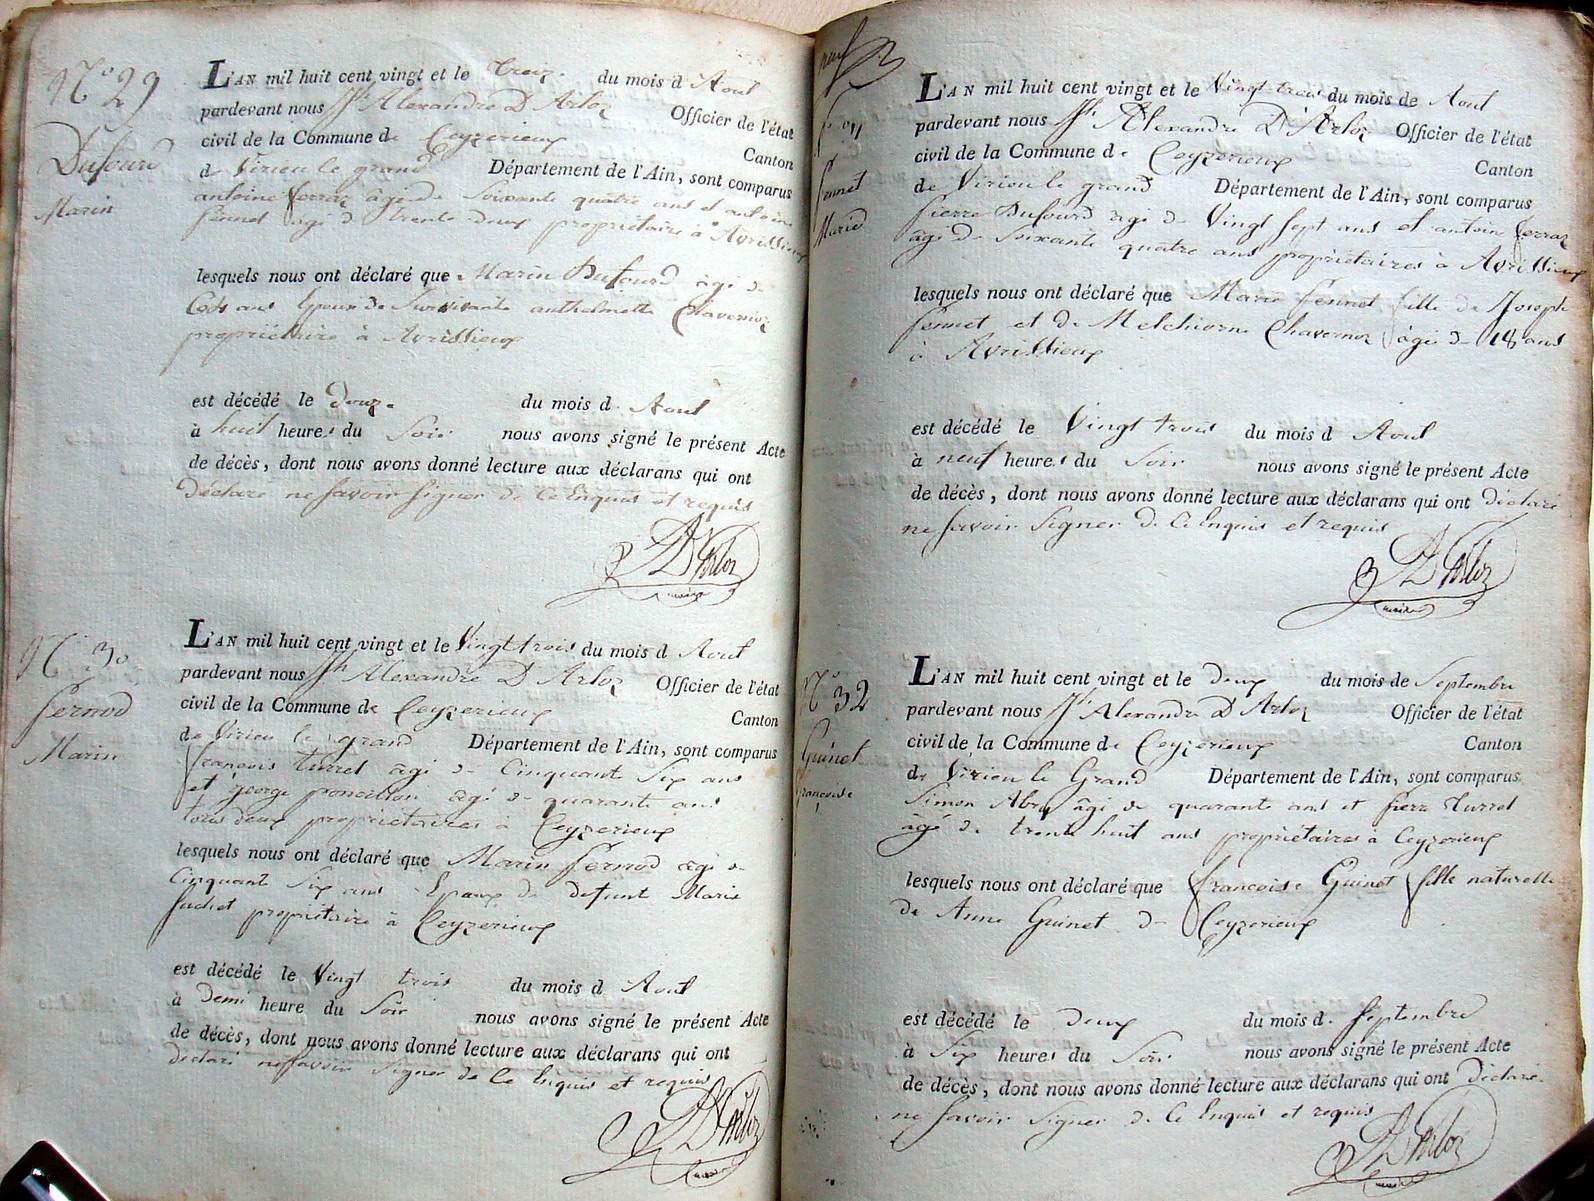 N.° 29
Dufourd
Marin
L'AN mil huit cent vingt et le treize du mois d Aout
pardevant nous Jh Alexandre D Arloz Officier de l'état
civil de la Commune de Ceyzerieux Canton
d Virieu le grand Département de l'Ain, sont comparus
antoine ferraz âgé de Soixante quatre ans et antoine
fennet agé de trente deux propriétaire à Avrissieux
lesquels nous ont déclaré que Marin Dufourd âgé de
ans Epoux de Survivante anthelmette Chavernoz
propriétaire à Avrissieux
est décédé le douze du mois d Aout
à huit heures du Soir nous avons signé le présent Acte
de décès, dont nous avons donné lecture aux déclarans qui ont
Déclaré ne Savoir Signer de Ce Enquis et requis
D Arloz
maire
N.° 30
fernod
Marin
L'AN mil huit cent vingt et le Vingt trois du mois d Aout
pardevant nous Jh Alexandre D Arloz Officier de l'état
civil de la Commune de Ceyzerieux Canton
de Virieu le grand Département de l'Ain, sont comparus
françois turrel âgé de Cinquante Six ans
et george poncillon âgé de quarante ans
tous deux propriétaires à Ceyzerieux
lesquels nous ont déclaré que Marin fernod âgé de
Cinquant Six ans Epoux de defunt Marie
Suchet propriétaire à Ceyzerieux
est décédé le Vingt trois du mois d Aout
à Demi heure du Soir nous avons signé le présent Acte
de décès, dont nous avons donné lecture aux déclarans qui ont
declaré ne Savoir Signer de Ce Enquis et requis
D Arloz
neuf
fennet
Marie
L'AN mil huit cent vingt et le Vingt trois du mois de Aout
pardevant nous Jh Alexandre D'Arloz Officier de l'état
civil de la Commune de Ceyzerieux Canton
de Virieu le grand Département de l'Ain, sont comparus
Pierre Dufourd âgé de Vingt Sept ans et antoine ferraz
âgé de Soixante quatre ans propriétaires à Avrissieux
lesquels nous ont déclaré que Marie fennet fille de Joseph
fennet et de Melchiorne Chavernoz âgé de 18 ans
à Avrissieux
est décédé le Vingt trois du mois d Aout
à neuf heures du Soir nous avons signé le présent Acte
de décès, dont nous avons donné lecture aux déclarans qui ont déclaré
ne Savoir Signer de Ce Enquis et requis
D Arloz
maire
N.° 32
Guinet
françoise
L'AN mil huit cent vingt et le deux du mois de Septembre
pardevant nous Jh Alexandre D Arloz Officier de l'état
civil de la Commune de Ceyzerieux Canton
de Virieu le Grand Département de l'Ain, sont comparus
Simon âgé de quarante ans et Pierre Turrel
âgé de trente huit ans propriétaires à Ceyzerieux
lesquels nous ont déclaré que françoise Guinet fille naturelle
de Anne Guinet de Ceyzerieux
est décédé le deux du mois d. Septembre
à Six heures du Soir nous avons signé le présent Acte
de décès, dont nous avons donné lecture aux déclarans qui ont déclaré
ne Savoir Signer de Ce Enquis et requis
D Arloz